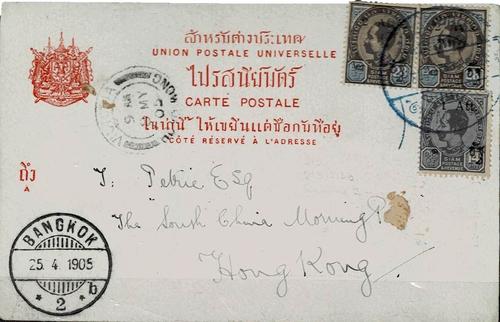 สำหรับต่างประเทศ
UNION POSTALE UNIVERSELLE
ไปรสนียบัตร์
CARTE POSTALE
ในน่านี้ ให้เขียนแต่ชื่อกับที่อยู่
CÔTÉ RÉSERVÉ À L'ADRESSE
ถึง
A
VICTORIA HONG KONG
MY
05
SIAM
POSTAGE
SIAM
POSTAGE
SIAM
POSTAGE
4
T. Petrie Esq
The South China Morning P
Hong Kong
BANGKOK
25. 4. 1905
* 2 * b